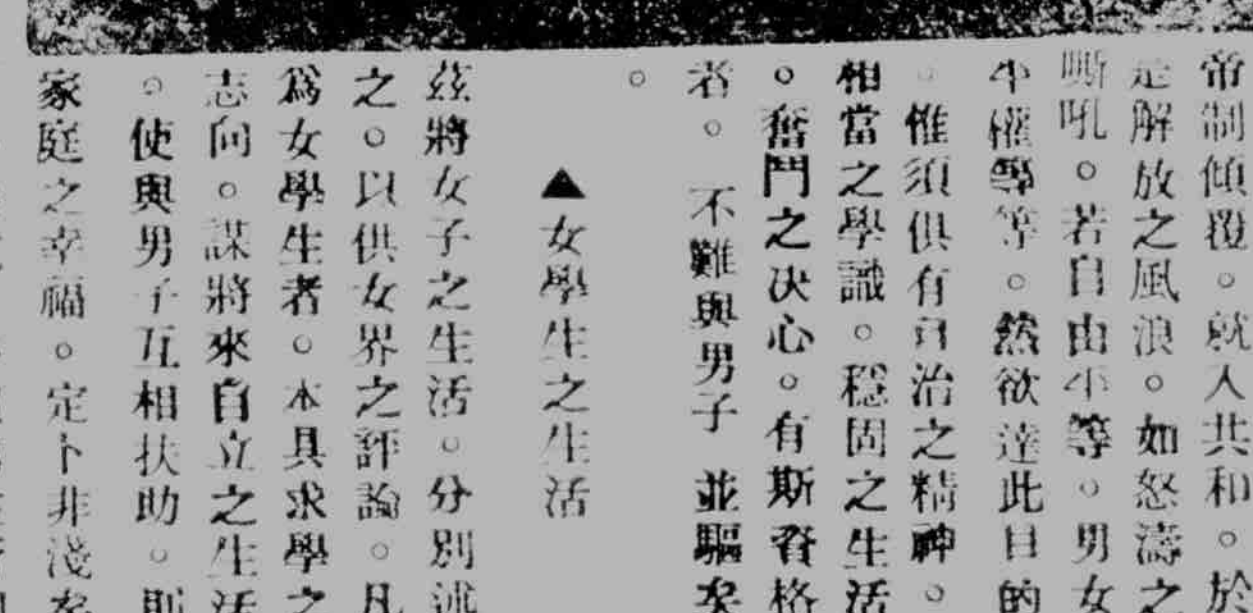 帝制傾覆。就入共和。於
是解放之風浪。如怒濤之
嘶吼。若自由平等。男女
平權等等。然欲達此目的
。惟須俱有自治之精神。
相當之學識。穩固之生活
。奮鬥之决心。有斯資格
者。不難與男子並驅矣
。
▲女學生之生活
茲將女子之生活。分別述
之。以供女界之評論。凡
爲女學生者。本具求學之
志向。謀將來自立之生活
。使與男子互相扶助。則
家庭之幸福。定卜非淺矣